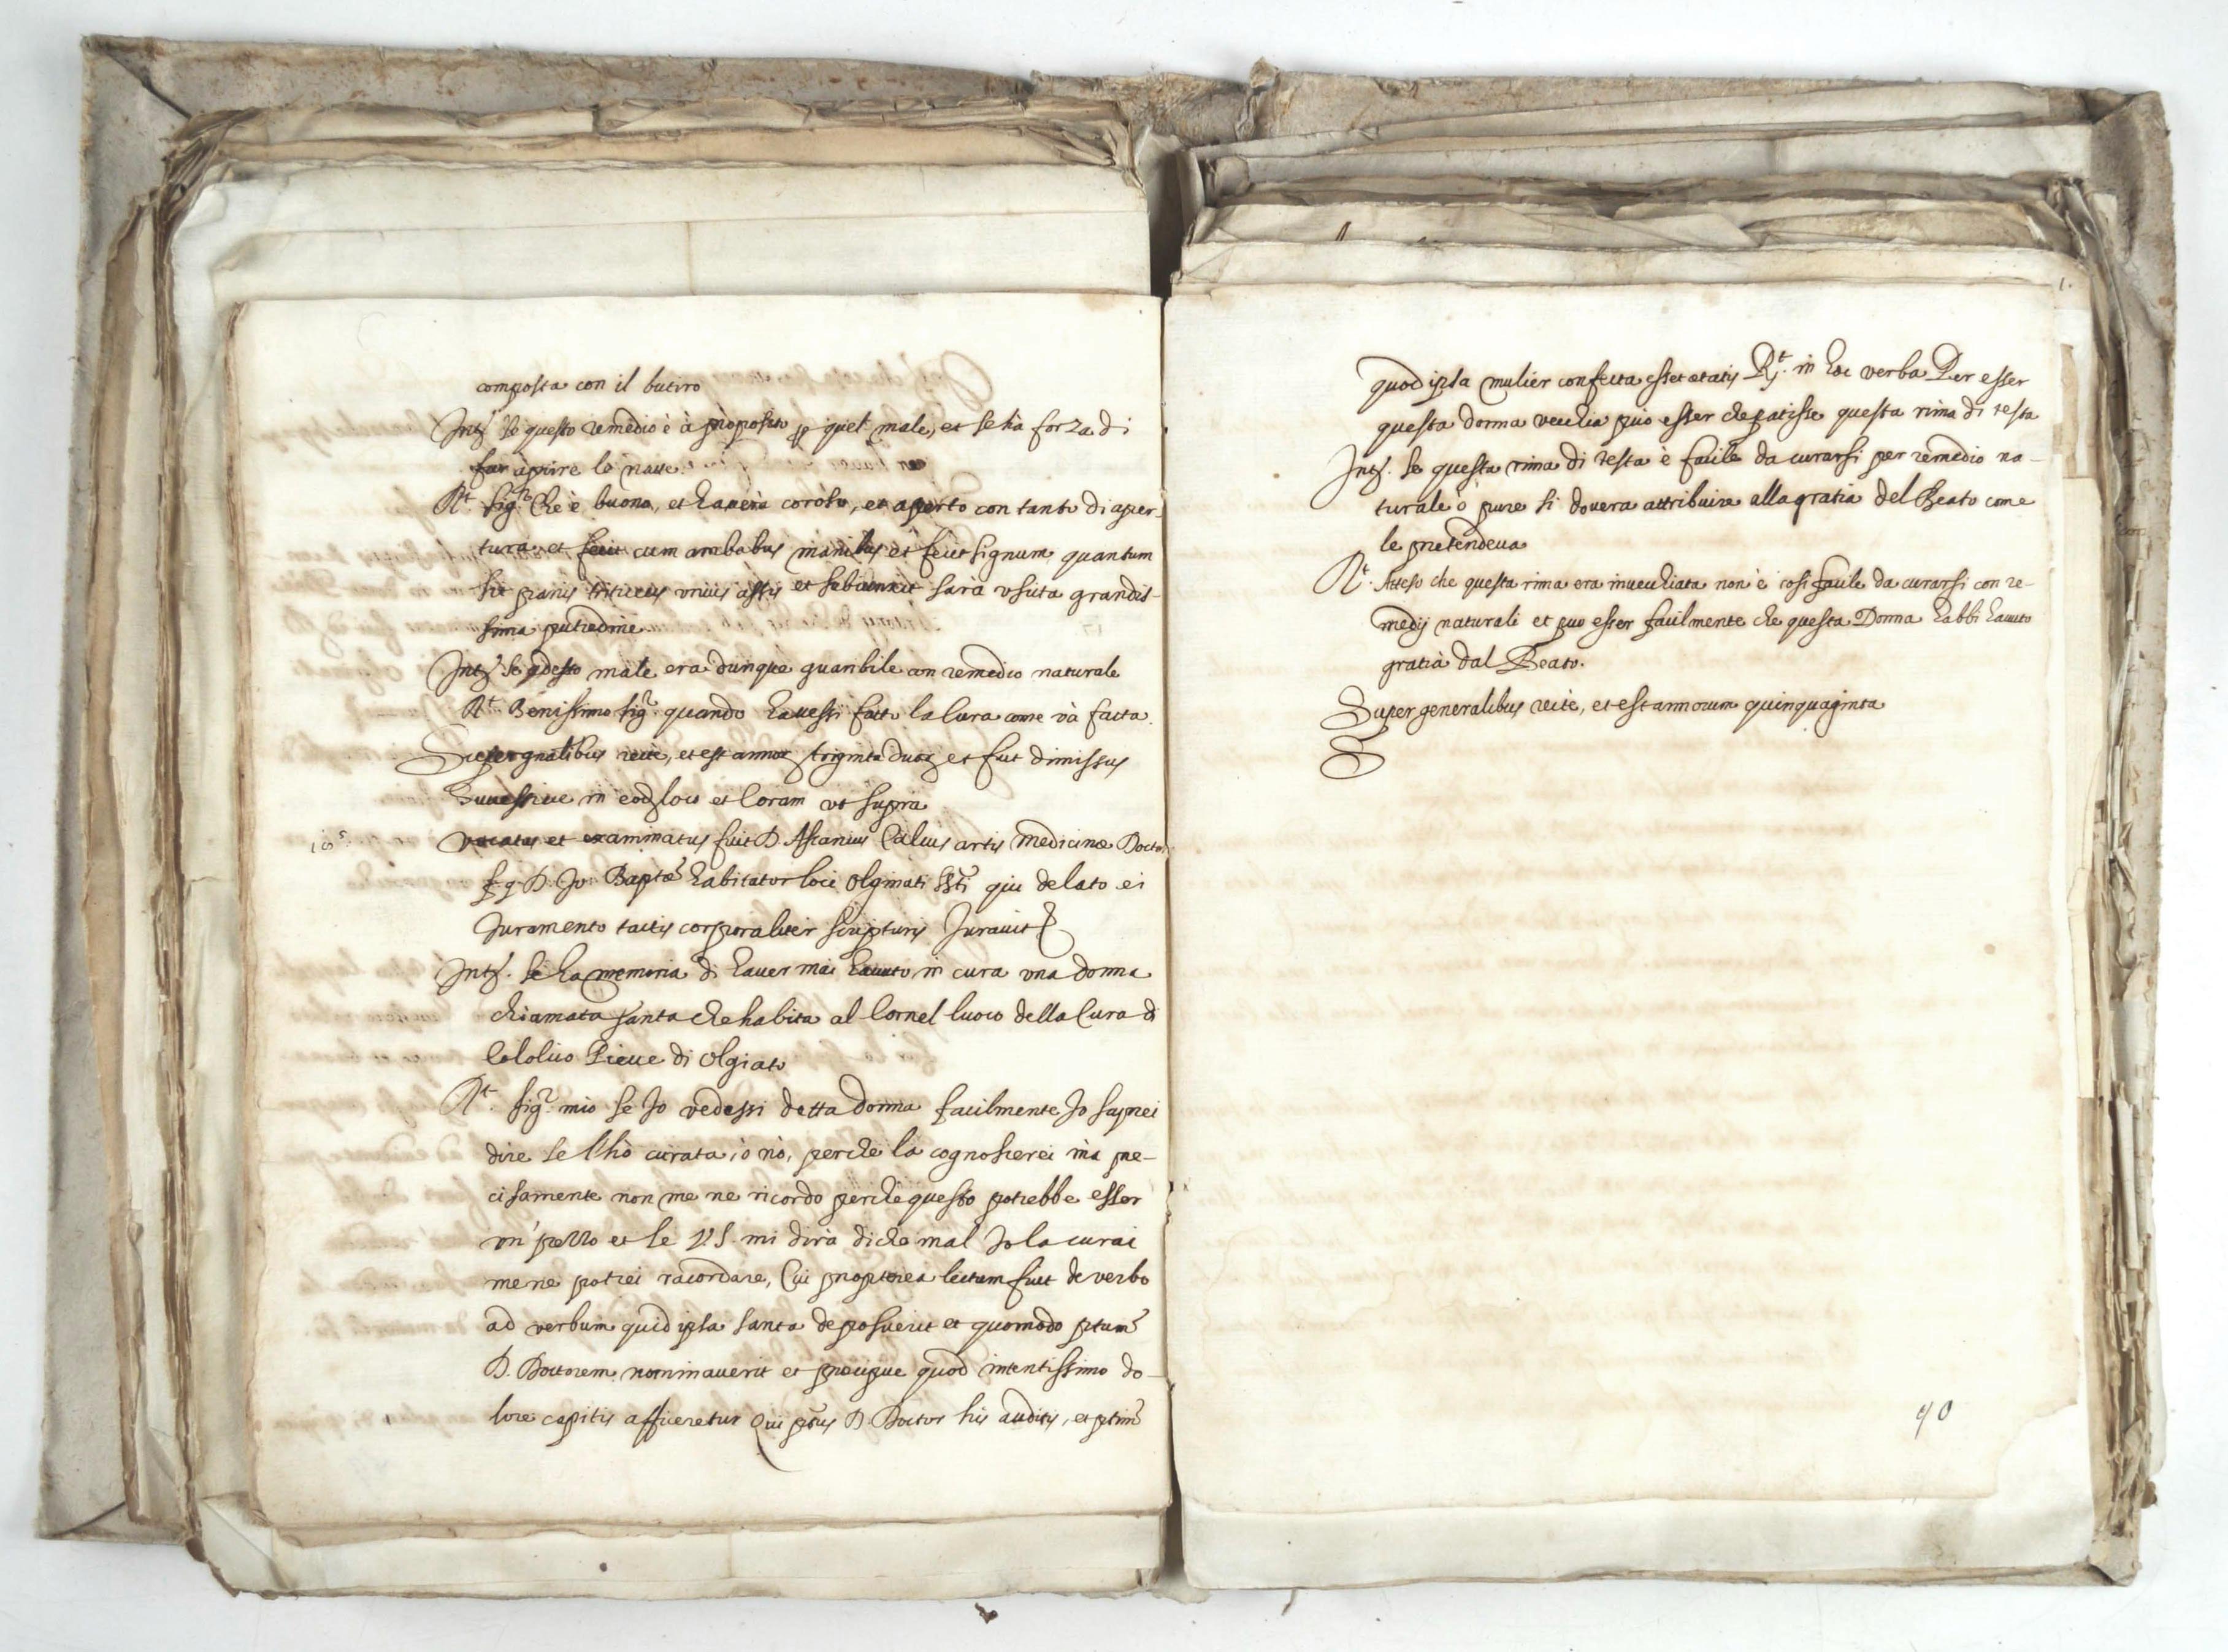 composta con il butiro
Intʒ se questo remedio è à proposito ꝑ quel male, et se hà forza di
far aprire le naue
Rt. Sigr Che è buono, et hauerà coroso, et aperto con tanto di aper-
tura et fecit cum ambabus manibus et fecit signum quantum
sit panis triticeus unius assis et subiunxit sarà uscita grandis-
sima putredine
Intʒ se qdesto male era dunque guaribile con remedio naturale
Rt. Benissimo sigr quando hauessi fatto la cura come và fatta.
Super gnalibus recte, et est annoʒ triginta duoʒ et fuit dimissus
Successiue in eodʒ loco et Coram ut supra
Vocatus et examinatus fuit D. Ascanius Caluus artis medicinæ Doctor
f. q. D. Jo: Baptæ habitator loci Olginati sʒti qui delato ei
Juramento tactis corporaliter scripturis Jurauit
Intʒ. se ha memoria di hauer mai hauuto in cura una donna
chiamata santa che habita al Cornel luoco della Cura di
Colclio Pieue di Olgiato
Rt. sigr mio se Jo vedessi detta donna facilmente Jo saprei
dire se l'hò curata, ò nò, perche la cognoscerei mà pre-
cisamente non me ne ricordo perche questo potrebbe esser
un' pezzo et se V.S. mi dirà di che mal Jo la curai
me ne potrei racordare, Cui propterea lectum fuit de verbo
ad verbum quid ipsa santa deposuerit et quomodo ptum
D. Doctorem nominauerit et precipue quod intentissimo do-
lore capitis afficeretur Qui ptus D. Doctor his auditis, et ptim
quod ipsa mulier confecta esset ætatis Rt. in hæc verba Per esser
questa donna vecchia può esser che patisse questa rima di testa
Intʒ. se questa rima di testa è facile da curarsi per remedio na-
turale ò pure si douera attribuire alla gratia del Beato come
le pretendeua
Rt. Atteso che questa rima era inuechiata non è cosi facile da curarsi con re-
medij naturali et puo esser facilmente che questa Donna habbi hauuto
gratia dal Beato.
Super generalibus recte, et est annorum quinquaginta
90